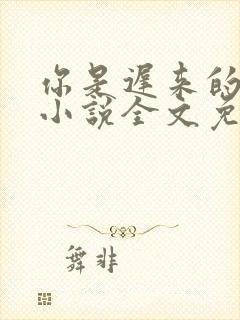 你是遲来的
小說全文免
舞非